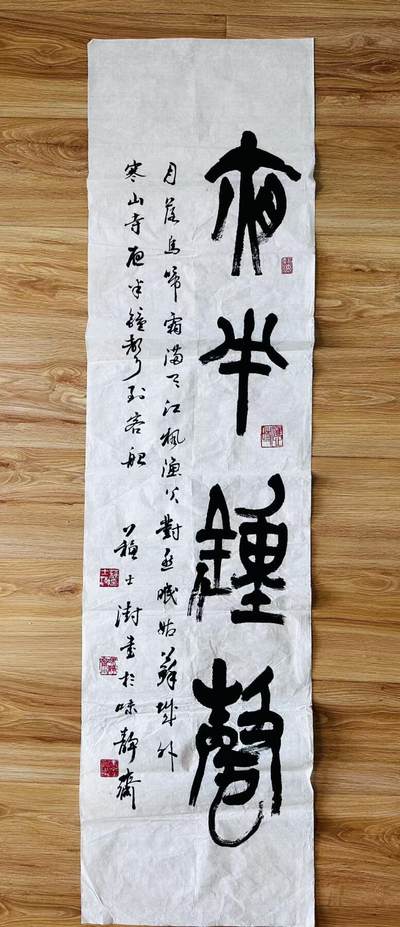 夜半鐘聲
月落烏啼霜滿天江楓漁火對愁眠姑蘇城外
寒山寺夜半鐘聲到客船
蘇士澍書於味靜齋